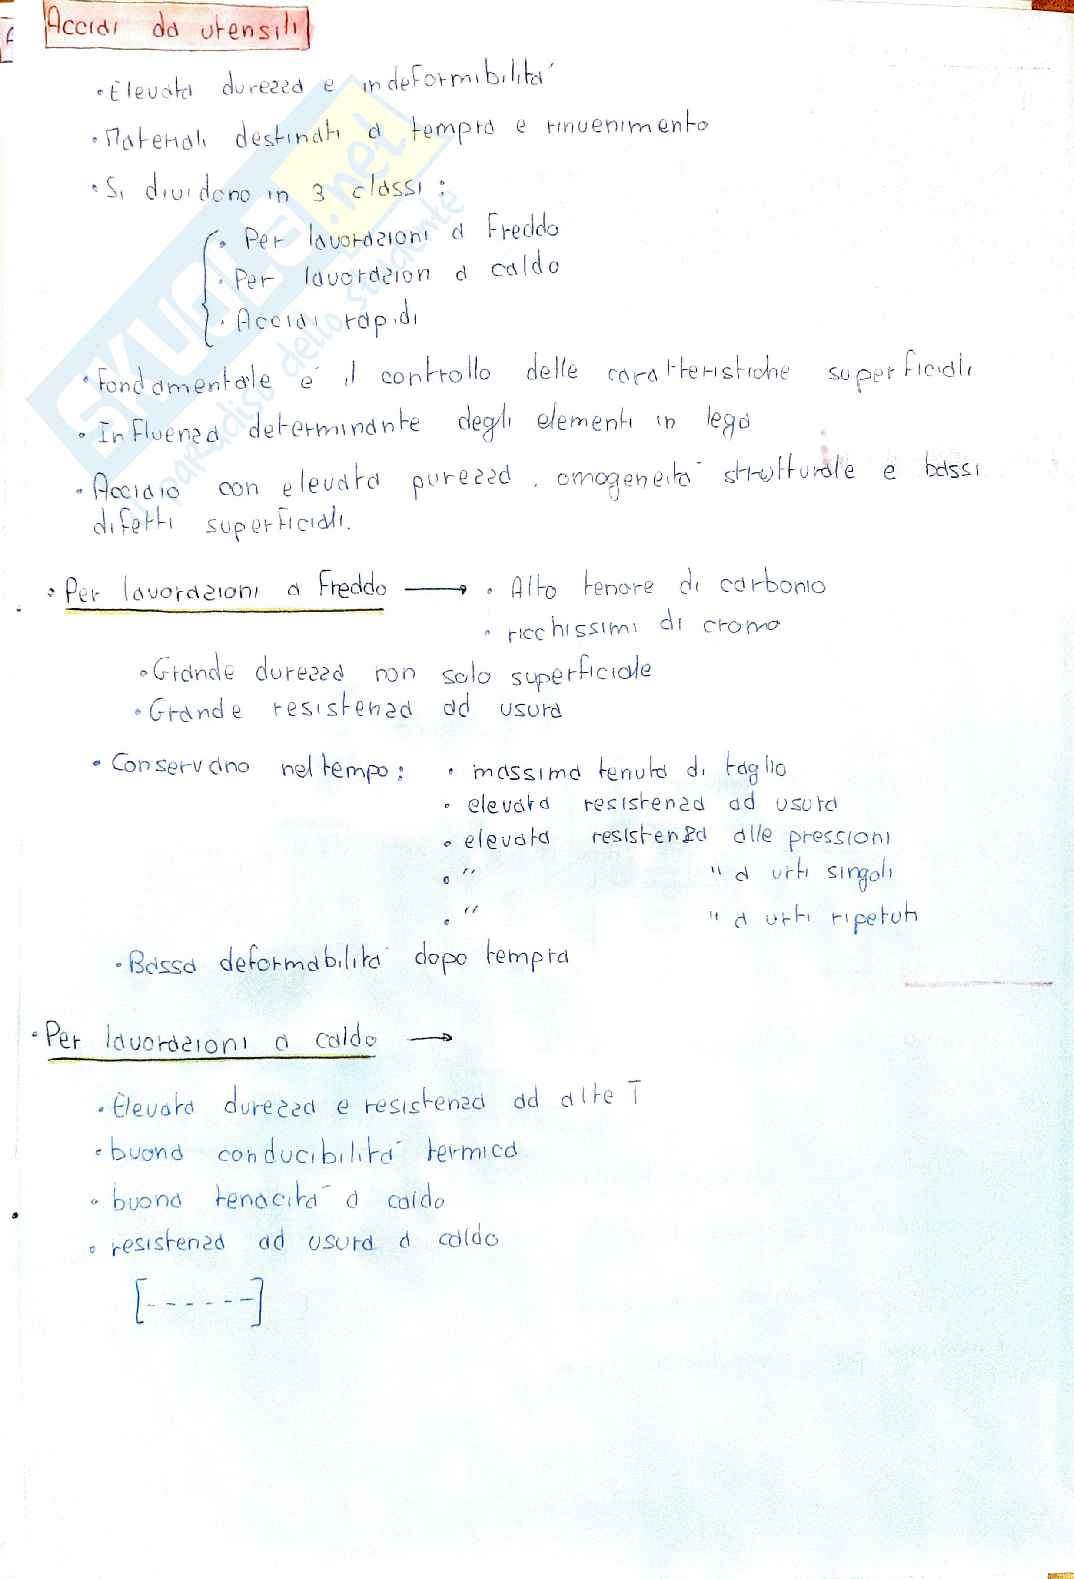 Acciai da utensili
• Elevata durezza e indeformibilità
• Materiali destinati a tempra e rinvenimento
• Si dividono in 3 classi:
• Per lavorazioni a Freddo
• Per lavorazion a caldo
• Acciai rapidi
• Fondamentale è il controllo delle caratteristiche superficiali
• Influenza determinante degli elementi in lega
• Acciaio con elevata purezza, omogeneità strutturale e bassi
difetti superficiali.
• Per lavorazioni a Freddo → • Alto tenore di carbonio
• ricchissimi di cromo
• Grande durezza non solo superficiale
• Grande resistenza ad usura
• Conservano nel tempo: • massima tenuta di taglio
• elevata resistenza ad usura
• elevata resistenza alle pressioni
• " " a urti singoli
• " " a urti ripetuti
• Bassa deformabilità dopo tempra
• Per lavorazioni a caldo →
• Elevata durezza e resistenza ad alte T
• buona conducibilità termica
• buona tenacità a caldo
• resistenza ad usura a caldo
[------]
SKUOLA.net
il paradiso dello studente